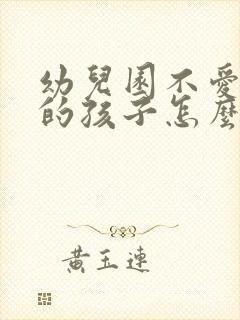 幼兒園不愛
的孩子怎麼
黃玉連